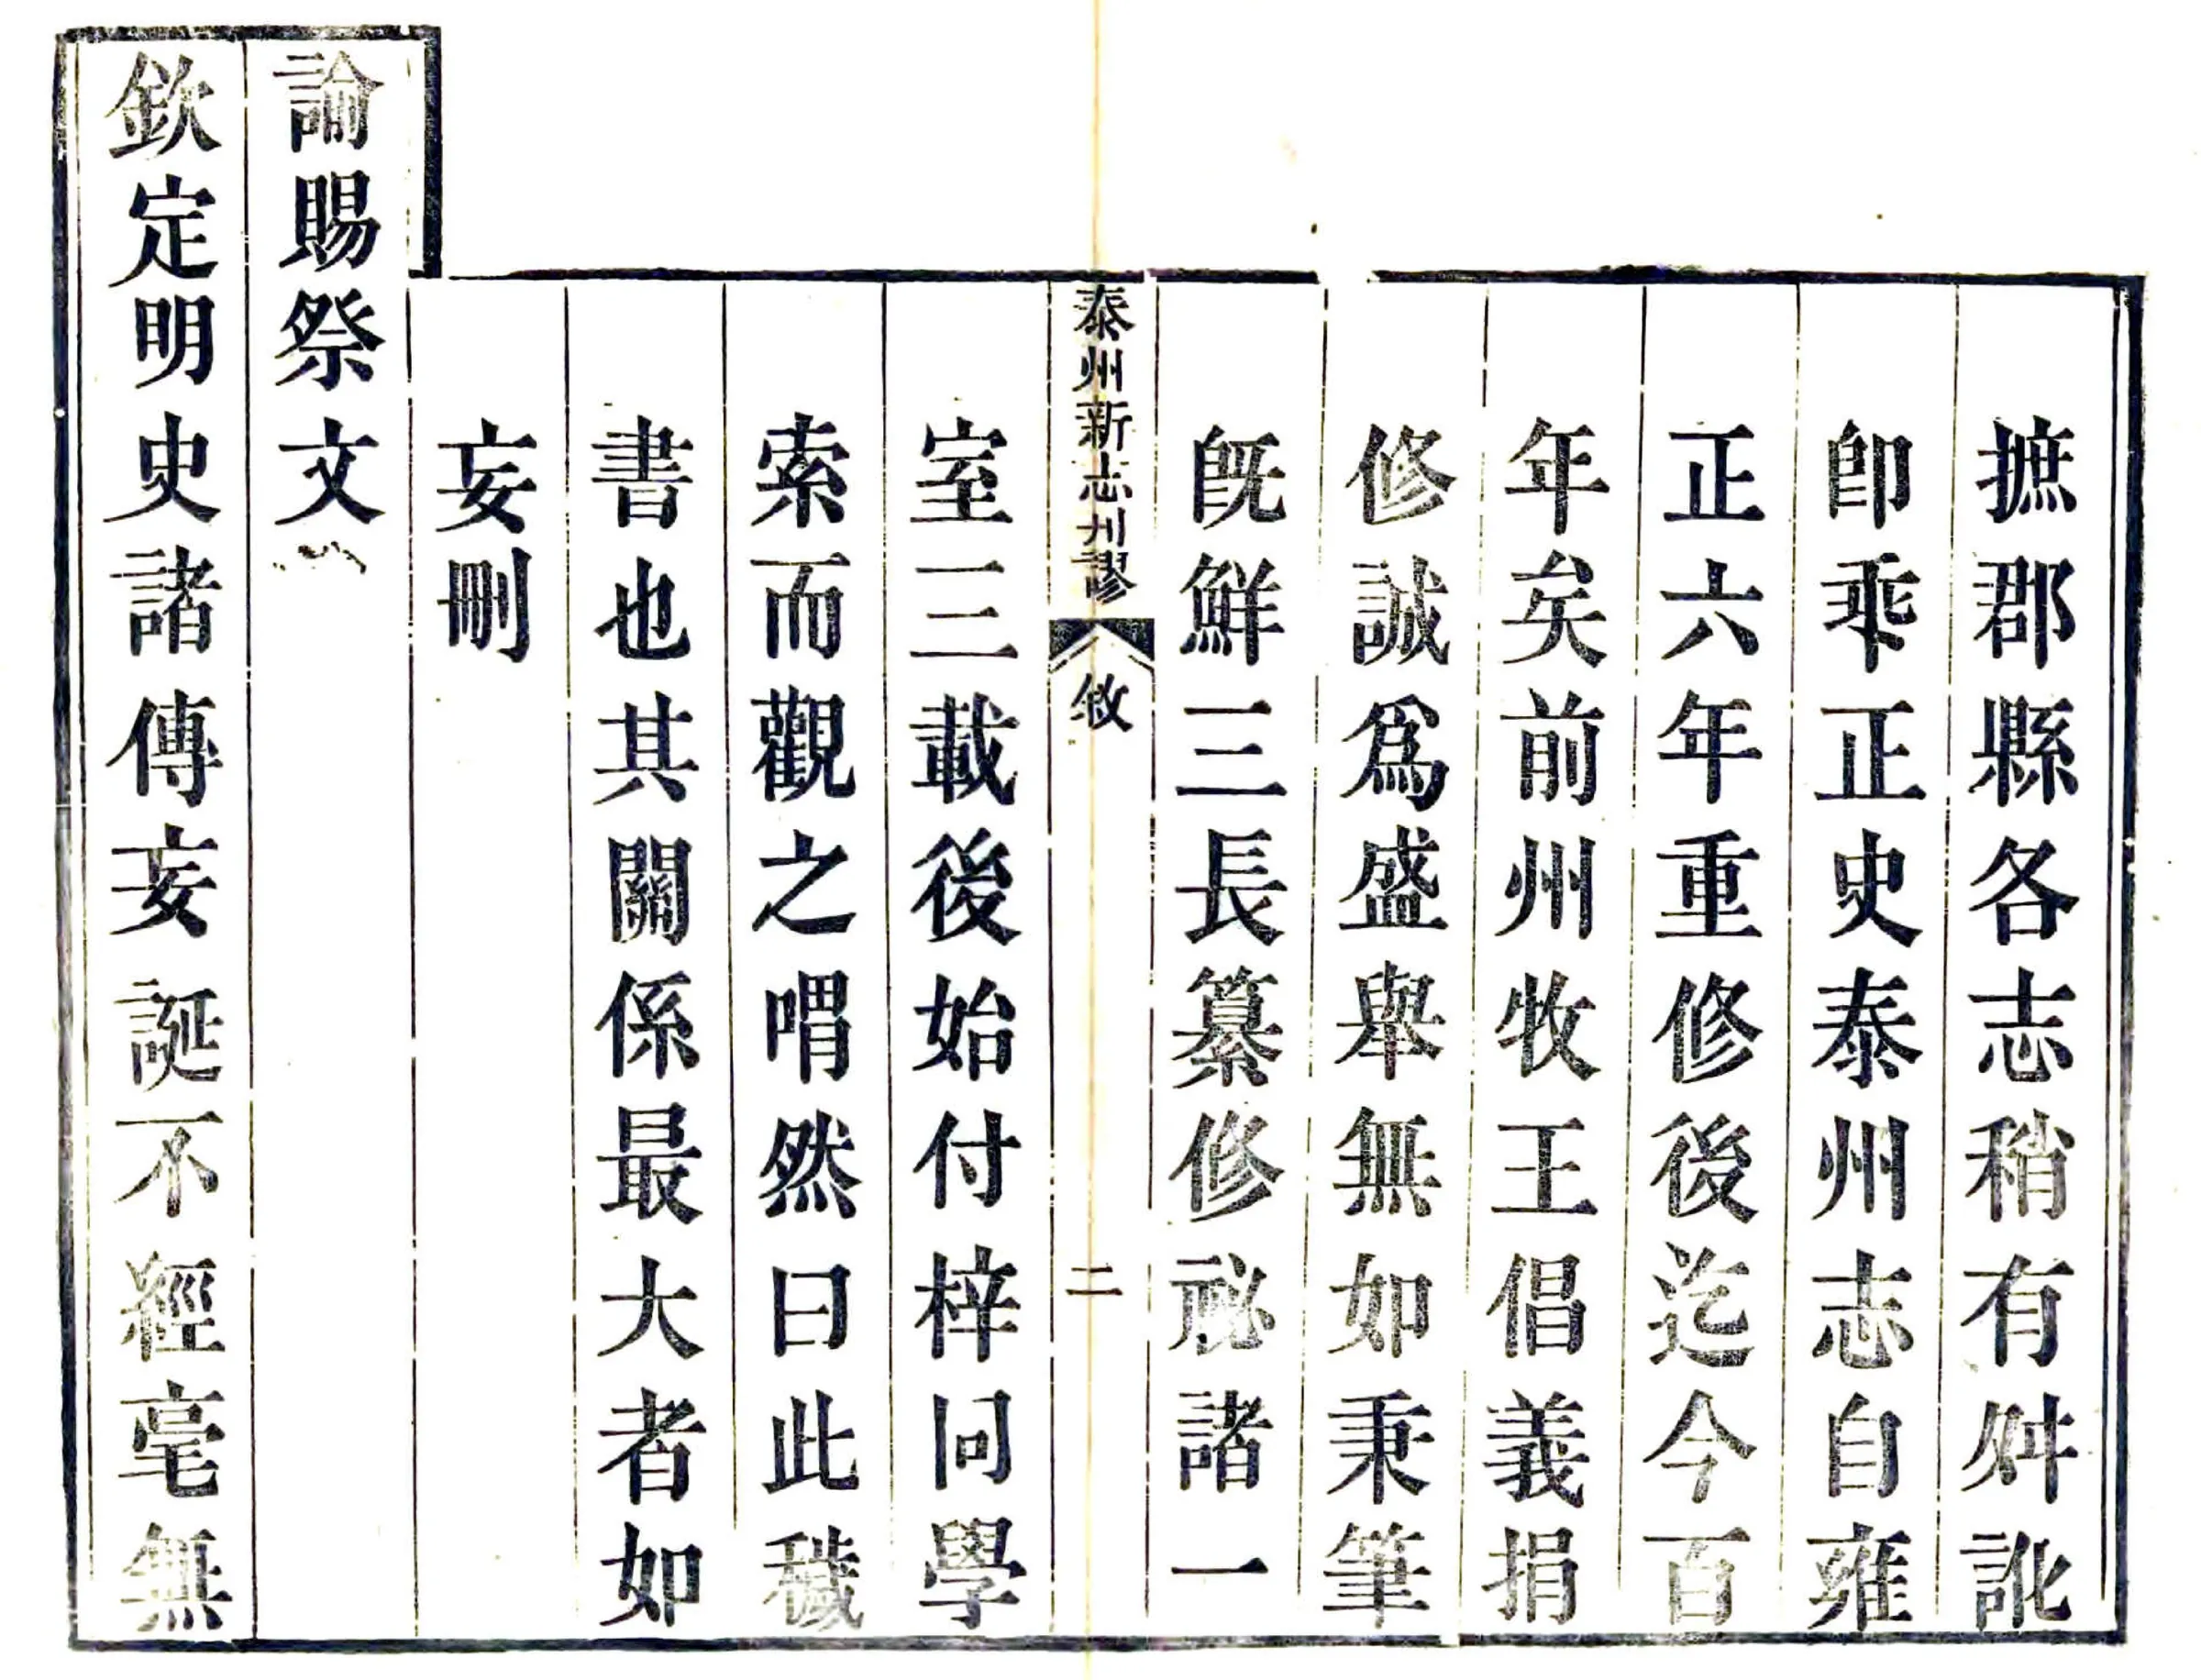 摭郡縣各志稍有舛訛
卽乖正史泰州志自雍
正六年重修後迄今百
年矣前州牧王倡義捐
修誠爲盛舉無如秉筆
旣鮮三長纂修祕諸一
泰州新志刋謬 敘 二
室三載後始付梓同學
索而觀之喟然曰此穢
書也其關係最大者如
妄刪
諭賜祭文
欽定明史諸傳妄誕不經毫無